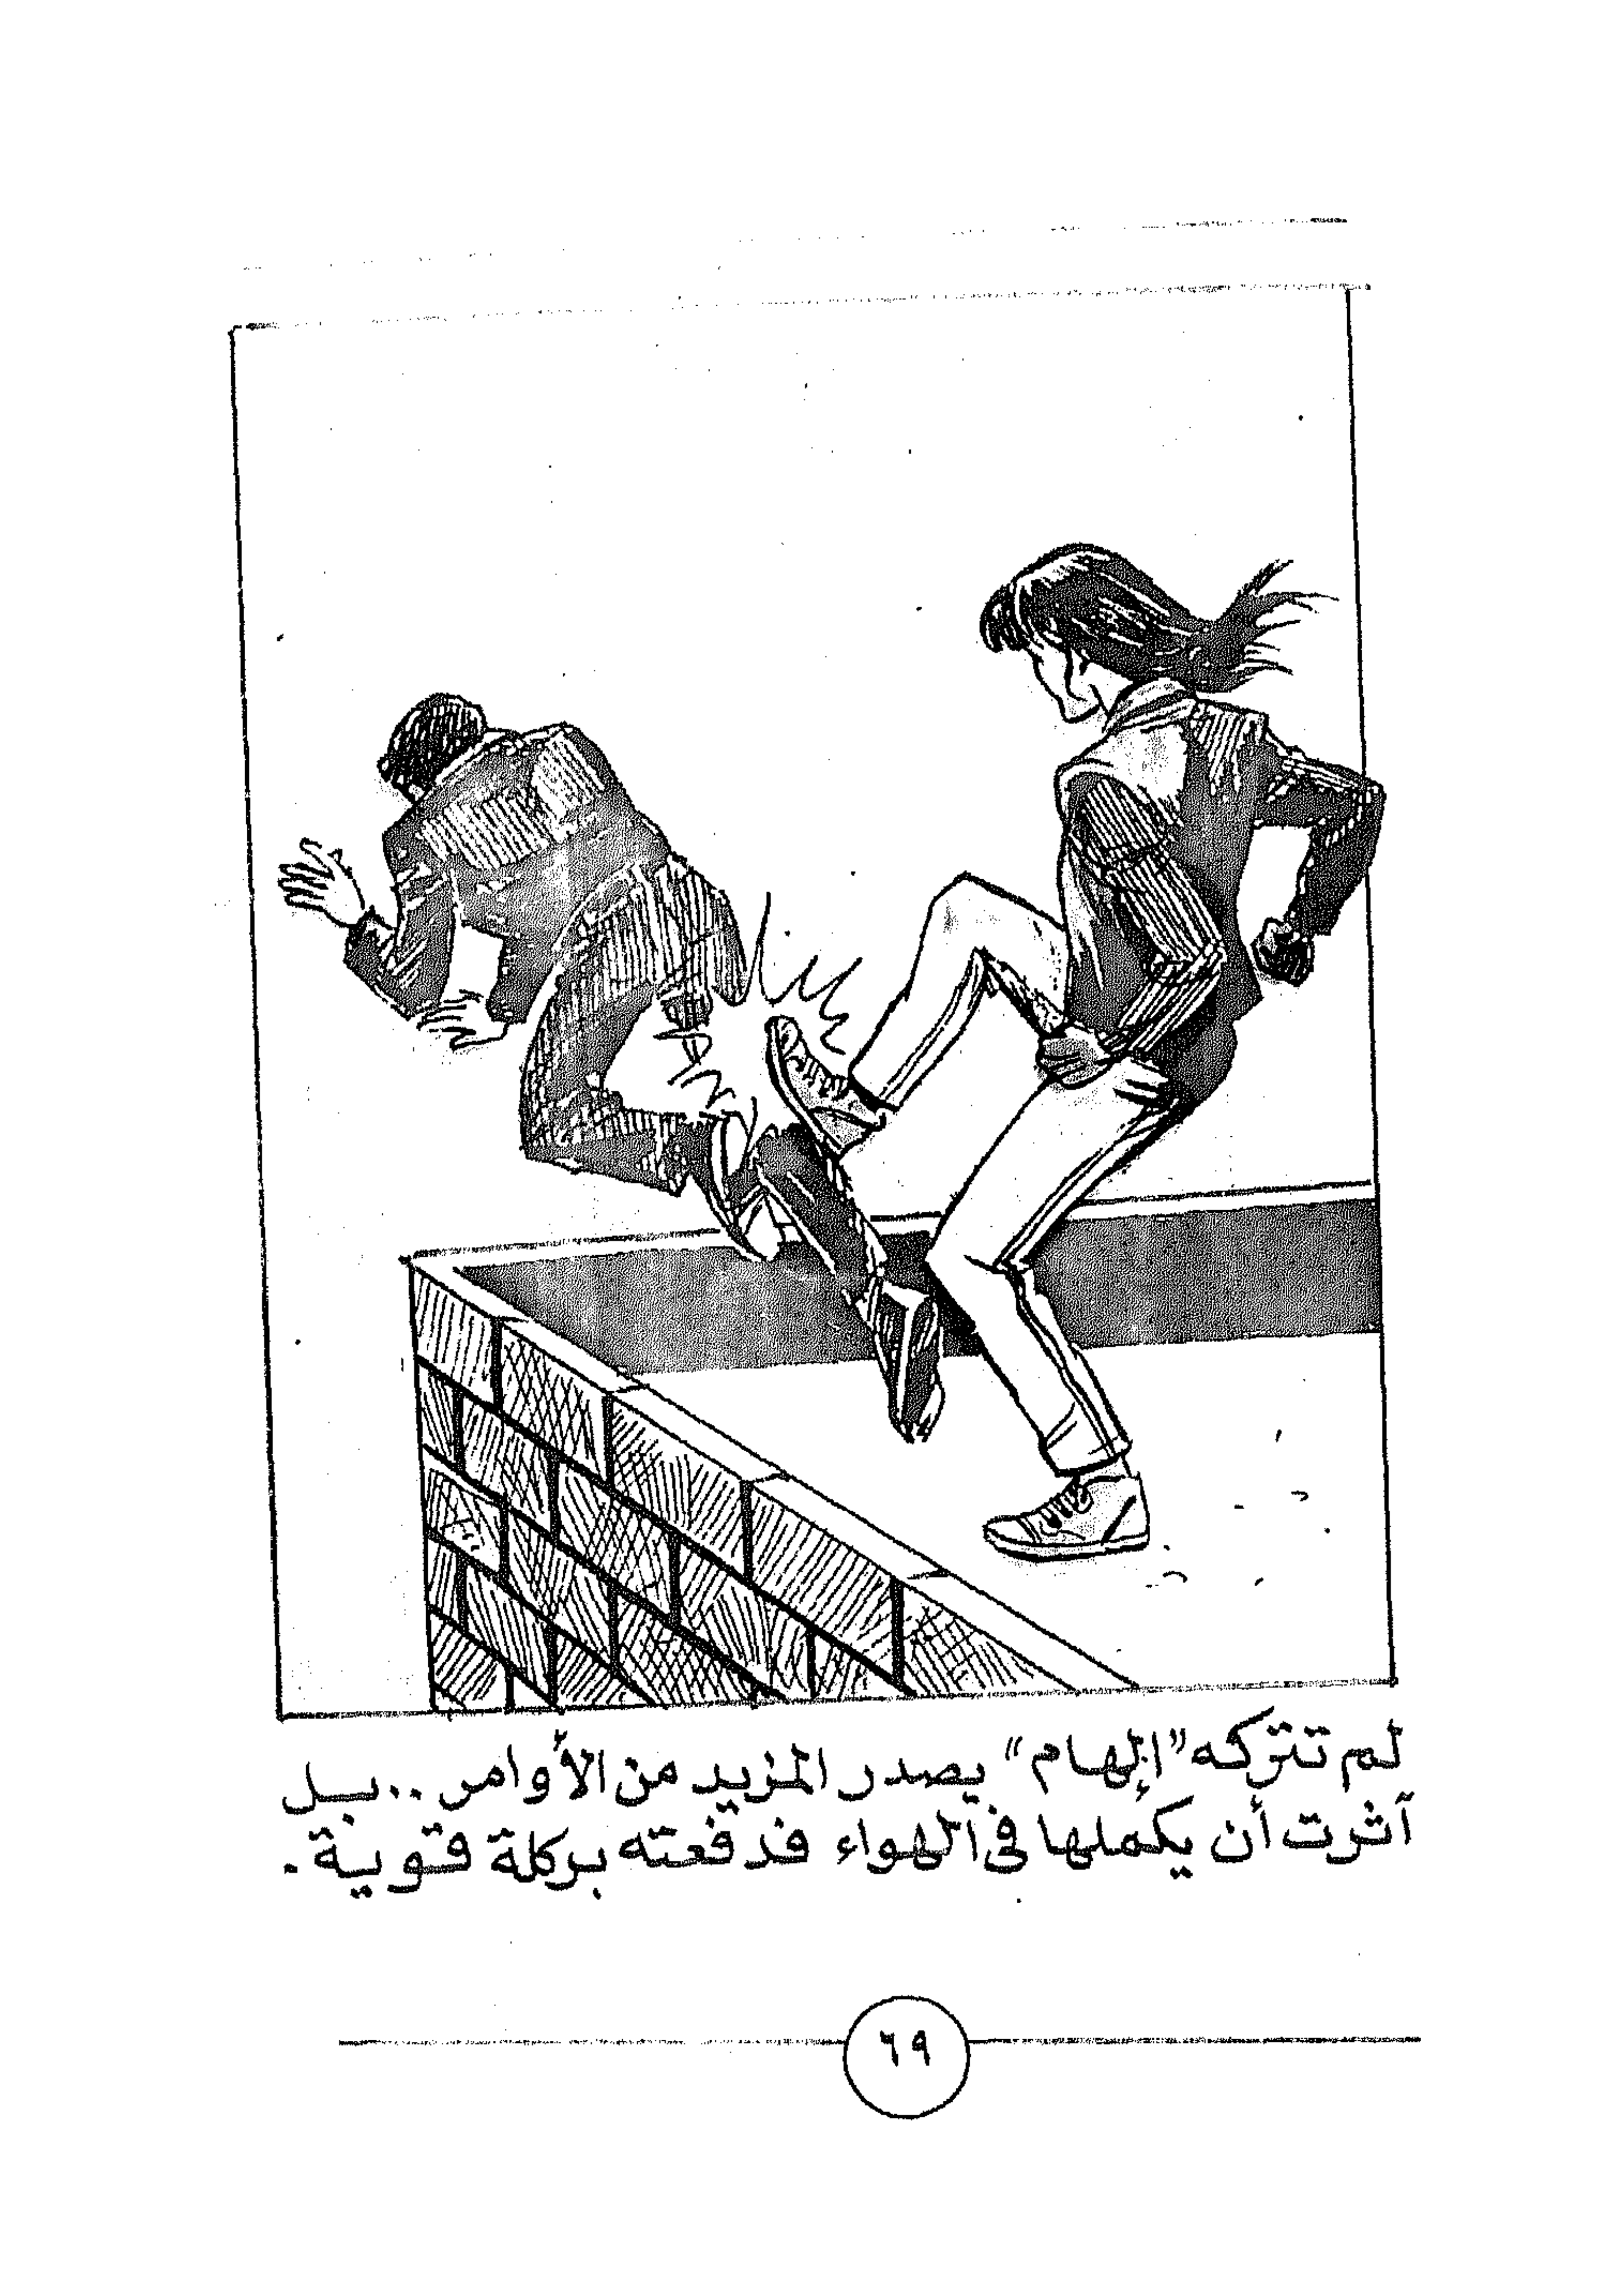 لم تتركه "إلهام" يصدر المزيد من الأوامر .. بل
آثرت أن يكملها فى الهواء فدفعته بركلة قوية .
٦٩